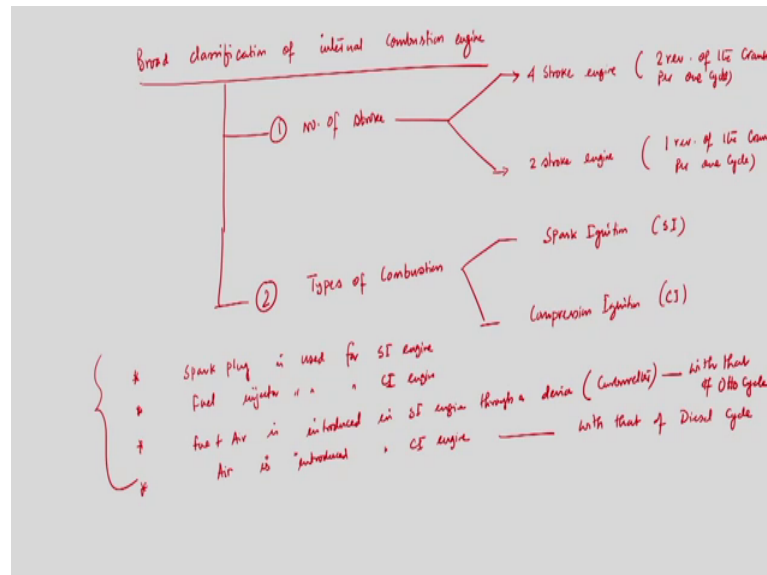 Broad classification of internal combustion engine
① No. of stroke
4 stroke engine ( 2 rev. of the Crank
per one cycle)
2 stroke engine ( 1 rev. of the Crank
per one cycle)
② Types of Combustion
Spark Ignition (SI)
Compression Ignition (CI)
* Spark plug is used for SI engine
* Fuel injector " " " CI engine
* Fuel + Air is introduced in SI engine through a device (Carburettor) — with that
of Otto Cycle
* Air is introduced " CI engine — with that of Diesel Cycle